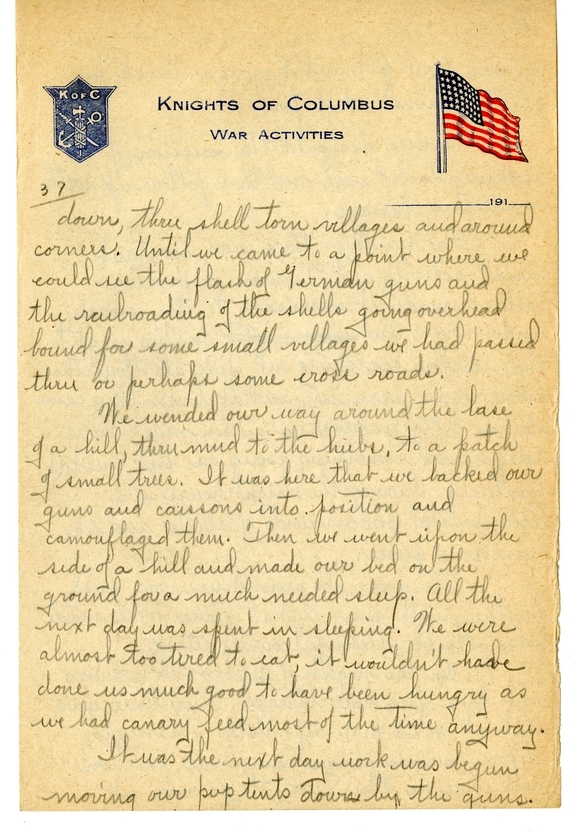 K OF C
KNIGHTS OF COLUMBUS
WAR ACTIVITIES
37
191
down, thru shell torn villages and around
corners. Until we came to a point where we
could see the flash of German guns and
the railroading of the shells going overhead
bound for some small villages we had passed
thru or perhaps some cross roads.
We wended our way around the base
of a hill, thru mud to the hubs, to a patch
of small trees. It was here that we backed our
guns and caissons into position and
camouflaged them. Then we went upon the
side of a hill and made our bed on the
ground for a much needed sleep. All the
next day was spent in sleeping. We were
almost too tired to eat, it wouldn't have
done us much good to have been hungry as
we had canary feed most of the time anyway.
It was the next day work was begun
moving our pup tents down by the guns.